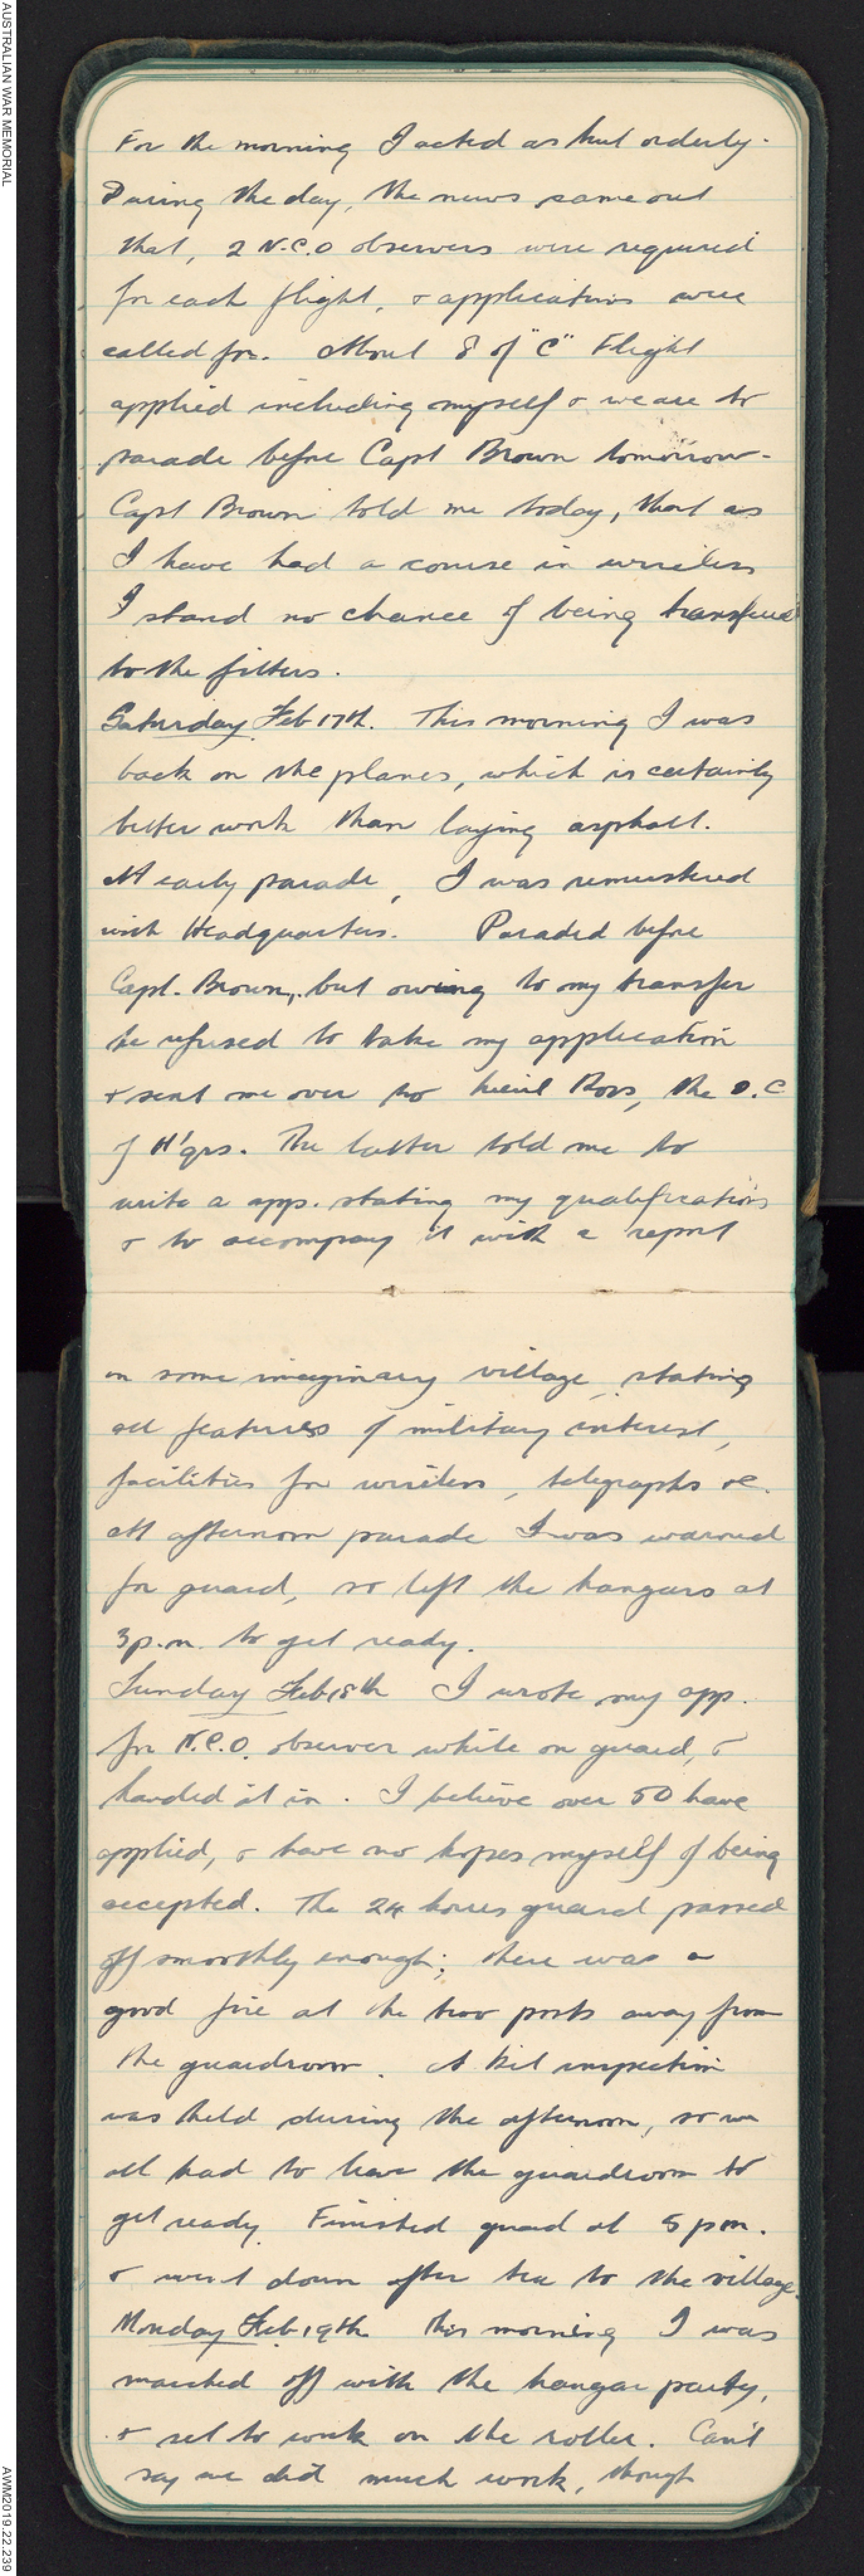 AUSTRALIAN WAR MEMORIAL
For the morning I acted as hut orderly.
During the day, the news came out
that, 2 N.C.O observers were required
for each flight, & applications were
called for. About 8 of "C" Flight
applied including myself & we are to
parade before Capt Brown tomorrow.
Capt Brown told me today, that as
I have had a course in wireless
I stand no chance of being transferred
to the fitters.
Saturday Feb 17th. This morning I was
back on the planes, which is certainly
better work than laying asphalt.
At early parade, I was remustered
with Headquarters. Paraded before
Capt. Brown, but owing to my transfer
he refused to take my application
& sent me over to Lieut Ross, the O.C
of H'qrs. The latter told me to
write a app. stating my qualifications
& to accompany it with a report
on some imaginary village, stating
all features of military interest,
facilities for wireless, telegraphs &c.
At afternoon parade I was warned
for guard, so left the hangars at
3p.m. to get ready.
Sunday Feb 18th I wrote my app.
for N.C.O. observer while on guard, &
handed it in. I believe over 50 have
applied, & have no hopes myself of being
accepted. The 24 hours guard passed
off smoothly enough; there was a
good fire at the two posts away from
the guardroom. A kit inspection
was held during the afternoon, so we
all had to leave the guardroom to
get ready. Finished guard at 5 pm.
& went down after tea to the village.
Monday Feb 19th This morning I was
marched off with the hangar party,
& set to work on the roller. Can't
say we did much work, though
AWM2019.22.239